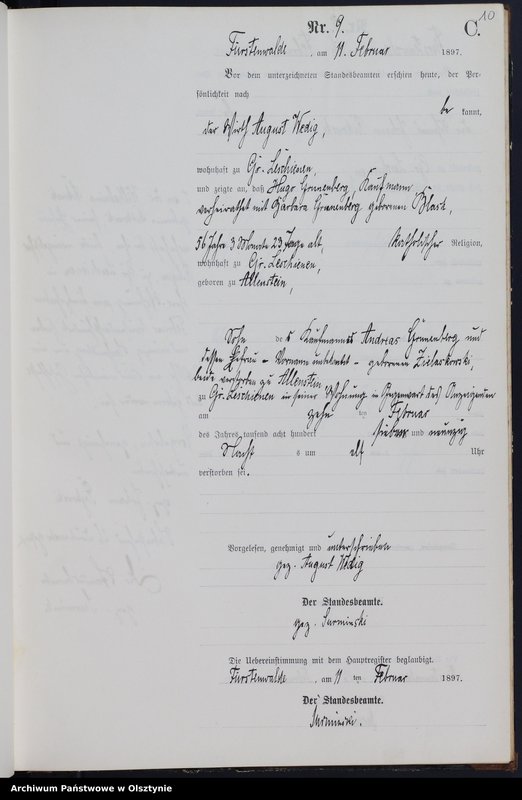 10
Nr. 9.
C.
Fürstenwalde, am 11. Februar 1897.
Vor dem unterzeichneten Standesbeamten erschien heute, der Per-
sönlichkeit nach
be kannt,
der Wirth August Wedig,
wohnhaft zu Gr. Leschienen,
und zeigte an, daß Hugo Grunenberg, Kaufmann
verheirathet mit Barbara Grunenberg geborenen
56 Jahre 3 Monate 23 Tage alt, katholischer Religion,
wohnhaft zu Gr. Leschienen,
geboren zu Allenstein,
Sohn des Kaufmannes Andreas Grunenberg und
dessen Ehefrau – Vorname unbekannt – geborenen
beide verstorben zu Allenstein
zu Gr. Leschienen in seiner Wohnung in Gegenwart des Anzeigenden
am zehn ten Februar
des Jahres tausend acht hundert sieben und neunzig
Nachts um elf Uhr
verstorben sei.
Vorgelesen, genehmigt und unterschrieben
gez. August Wedig
Der Standesbeamte.
gez. Surminski
Die Uebereinstimmung mit dem Hauptregister beglaubigt.
Fürstenwalde, am 11 ten Februar 1897.
Der Standesbeamte.
Surminski.
Archiwum Państwowe w Olsztynie